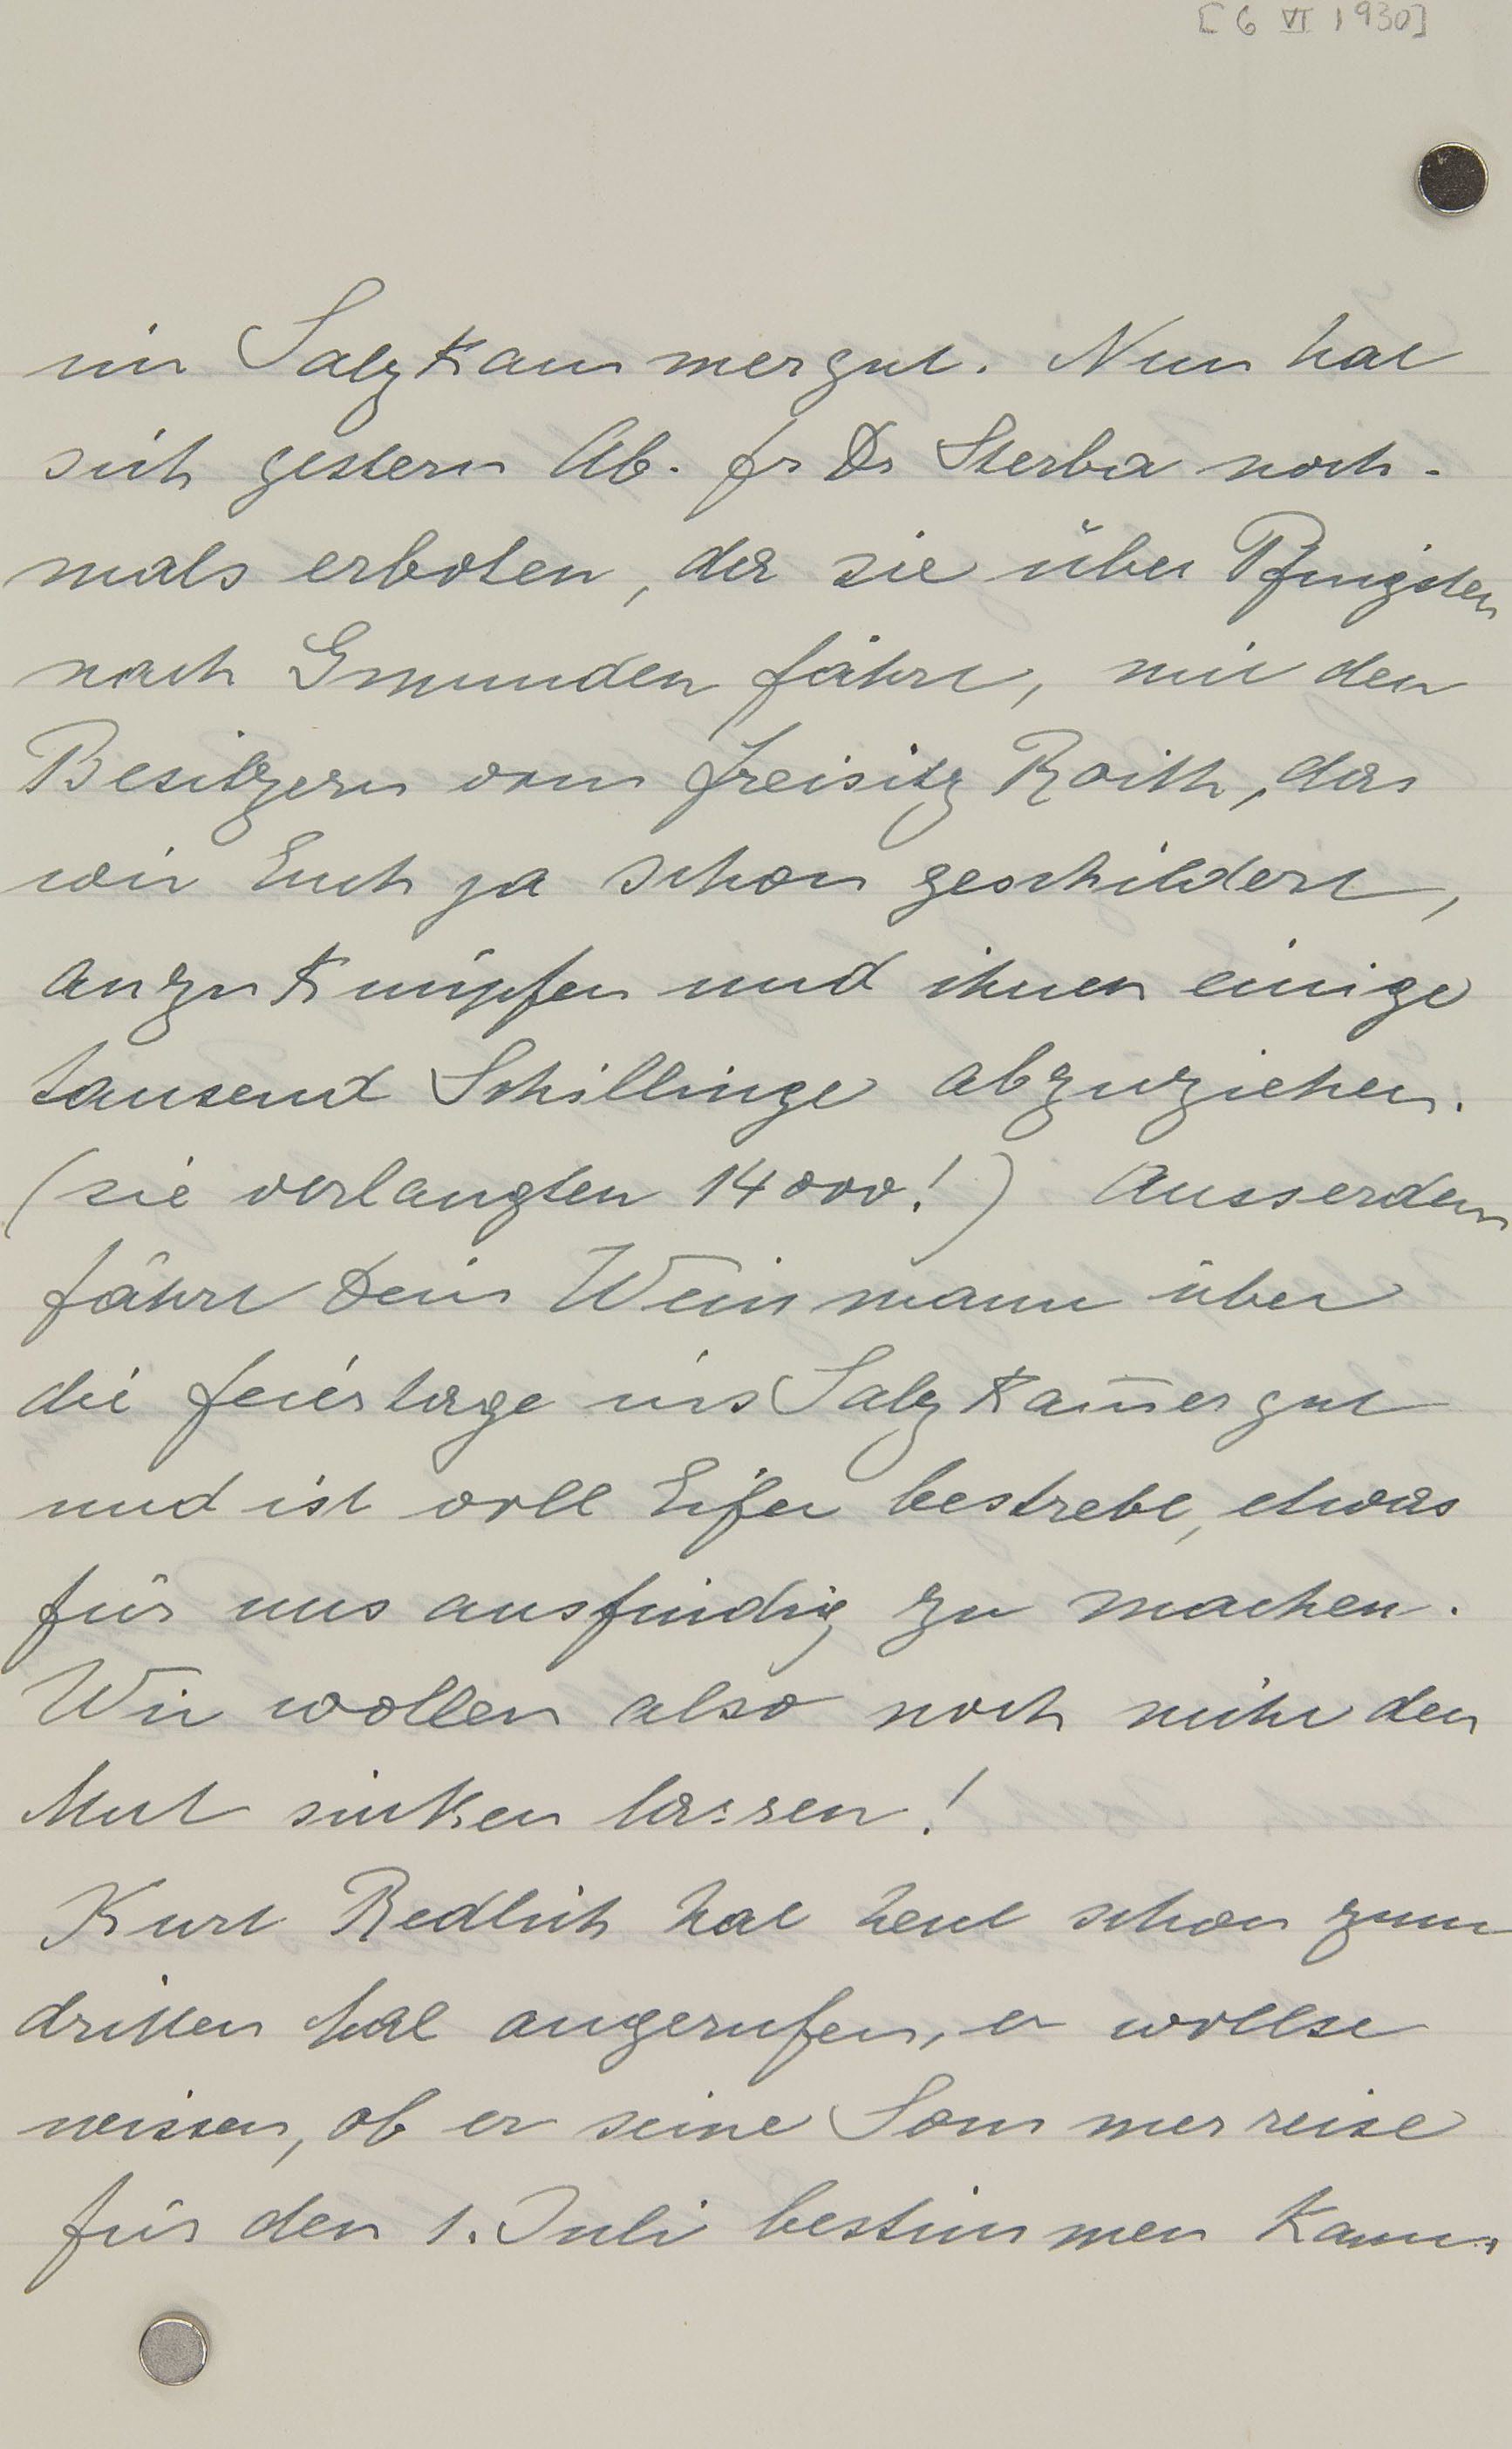 [6 VI 1930]
im Salzkammergut. Nun hat
sich gestern Ab. Fr Dr Sterba noch-
mals erboten, da sie über Pfingsten
nach Gmunden fährt, mit den
Besitzern vom Freisitz Roith, das
wir Euch ja schon geschildert,
anzuknüpfen und ihnen einige
tausend Schillinge abzuziehen.
(sie verlangten 14000!) Ausserdem
fährt Dein Weinmann über
die Feiertage ins Salzkam̅ergut
und ist voll Eifer bestrebt, etwas
für uns ausfindig zu machen.
Wir wollen also noch nicht den
Mut sinken lassen!
Kurt Redlich hat heut schon zum
dritten Mal angerufen, er wollte
wissen, ob er seine Sommerreise
für den 1. Juli bestimmen kann.